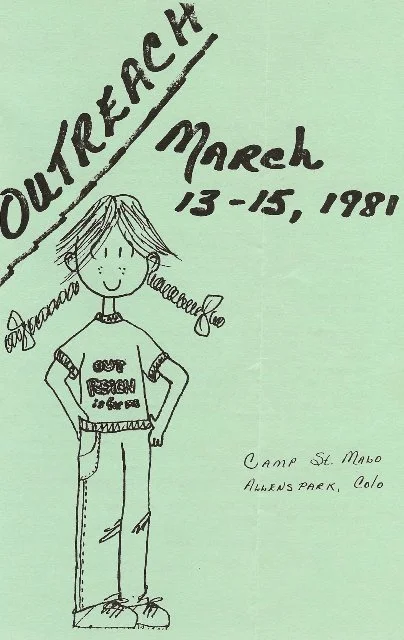 OUTREACH
March
13-15, 1981
OUT
REACH
is for me
Camp St. Malo
Allenspark, Colo